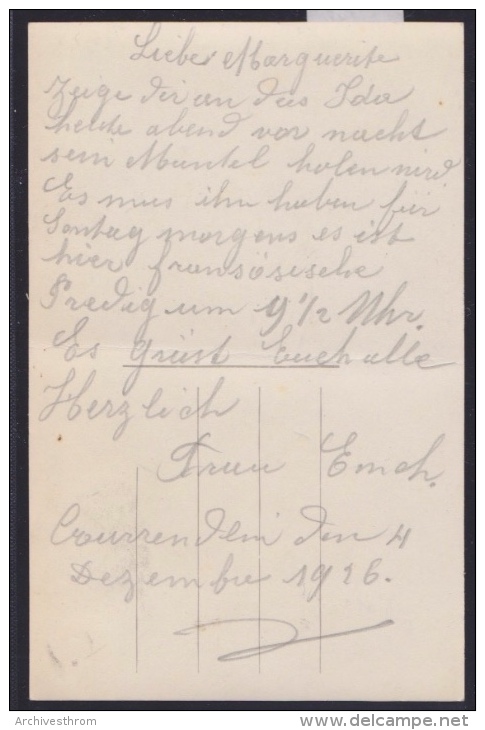 Liebe Marguerite
Zeige dir an das Ida
heute abend vor nacht
sein Mantel holen wird
Es mus ihn haben für
Sontag morgens es ist
hier fransösische
Predig um 9 1/2 Uhr.
Es grüst Euch alle
Herzlich
Frau Emch.
Courrendlin den 4
Dezember 1926.
Archivesthrom
www.delcampe.net